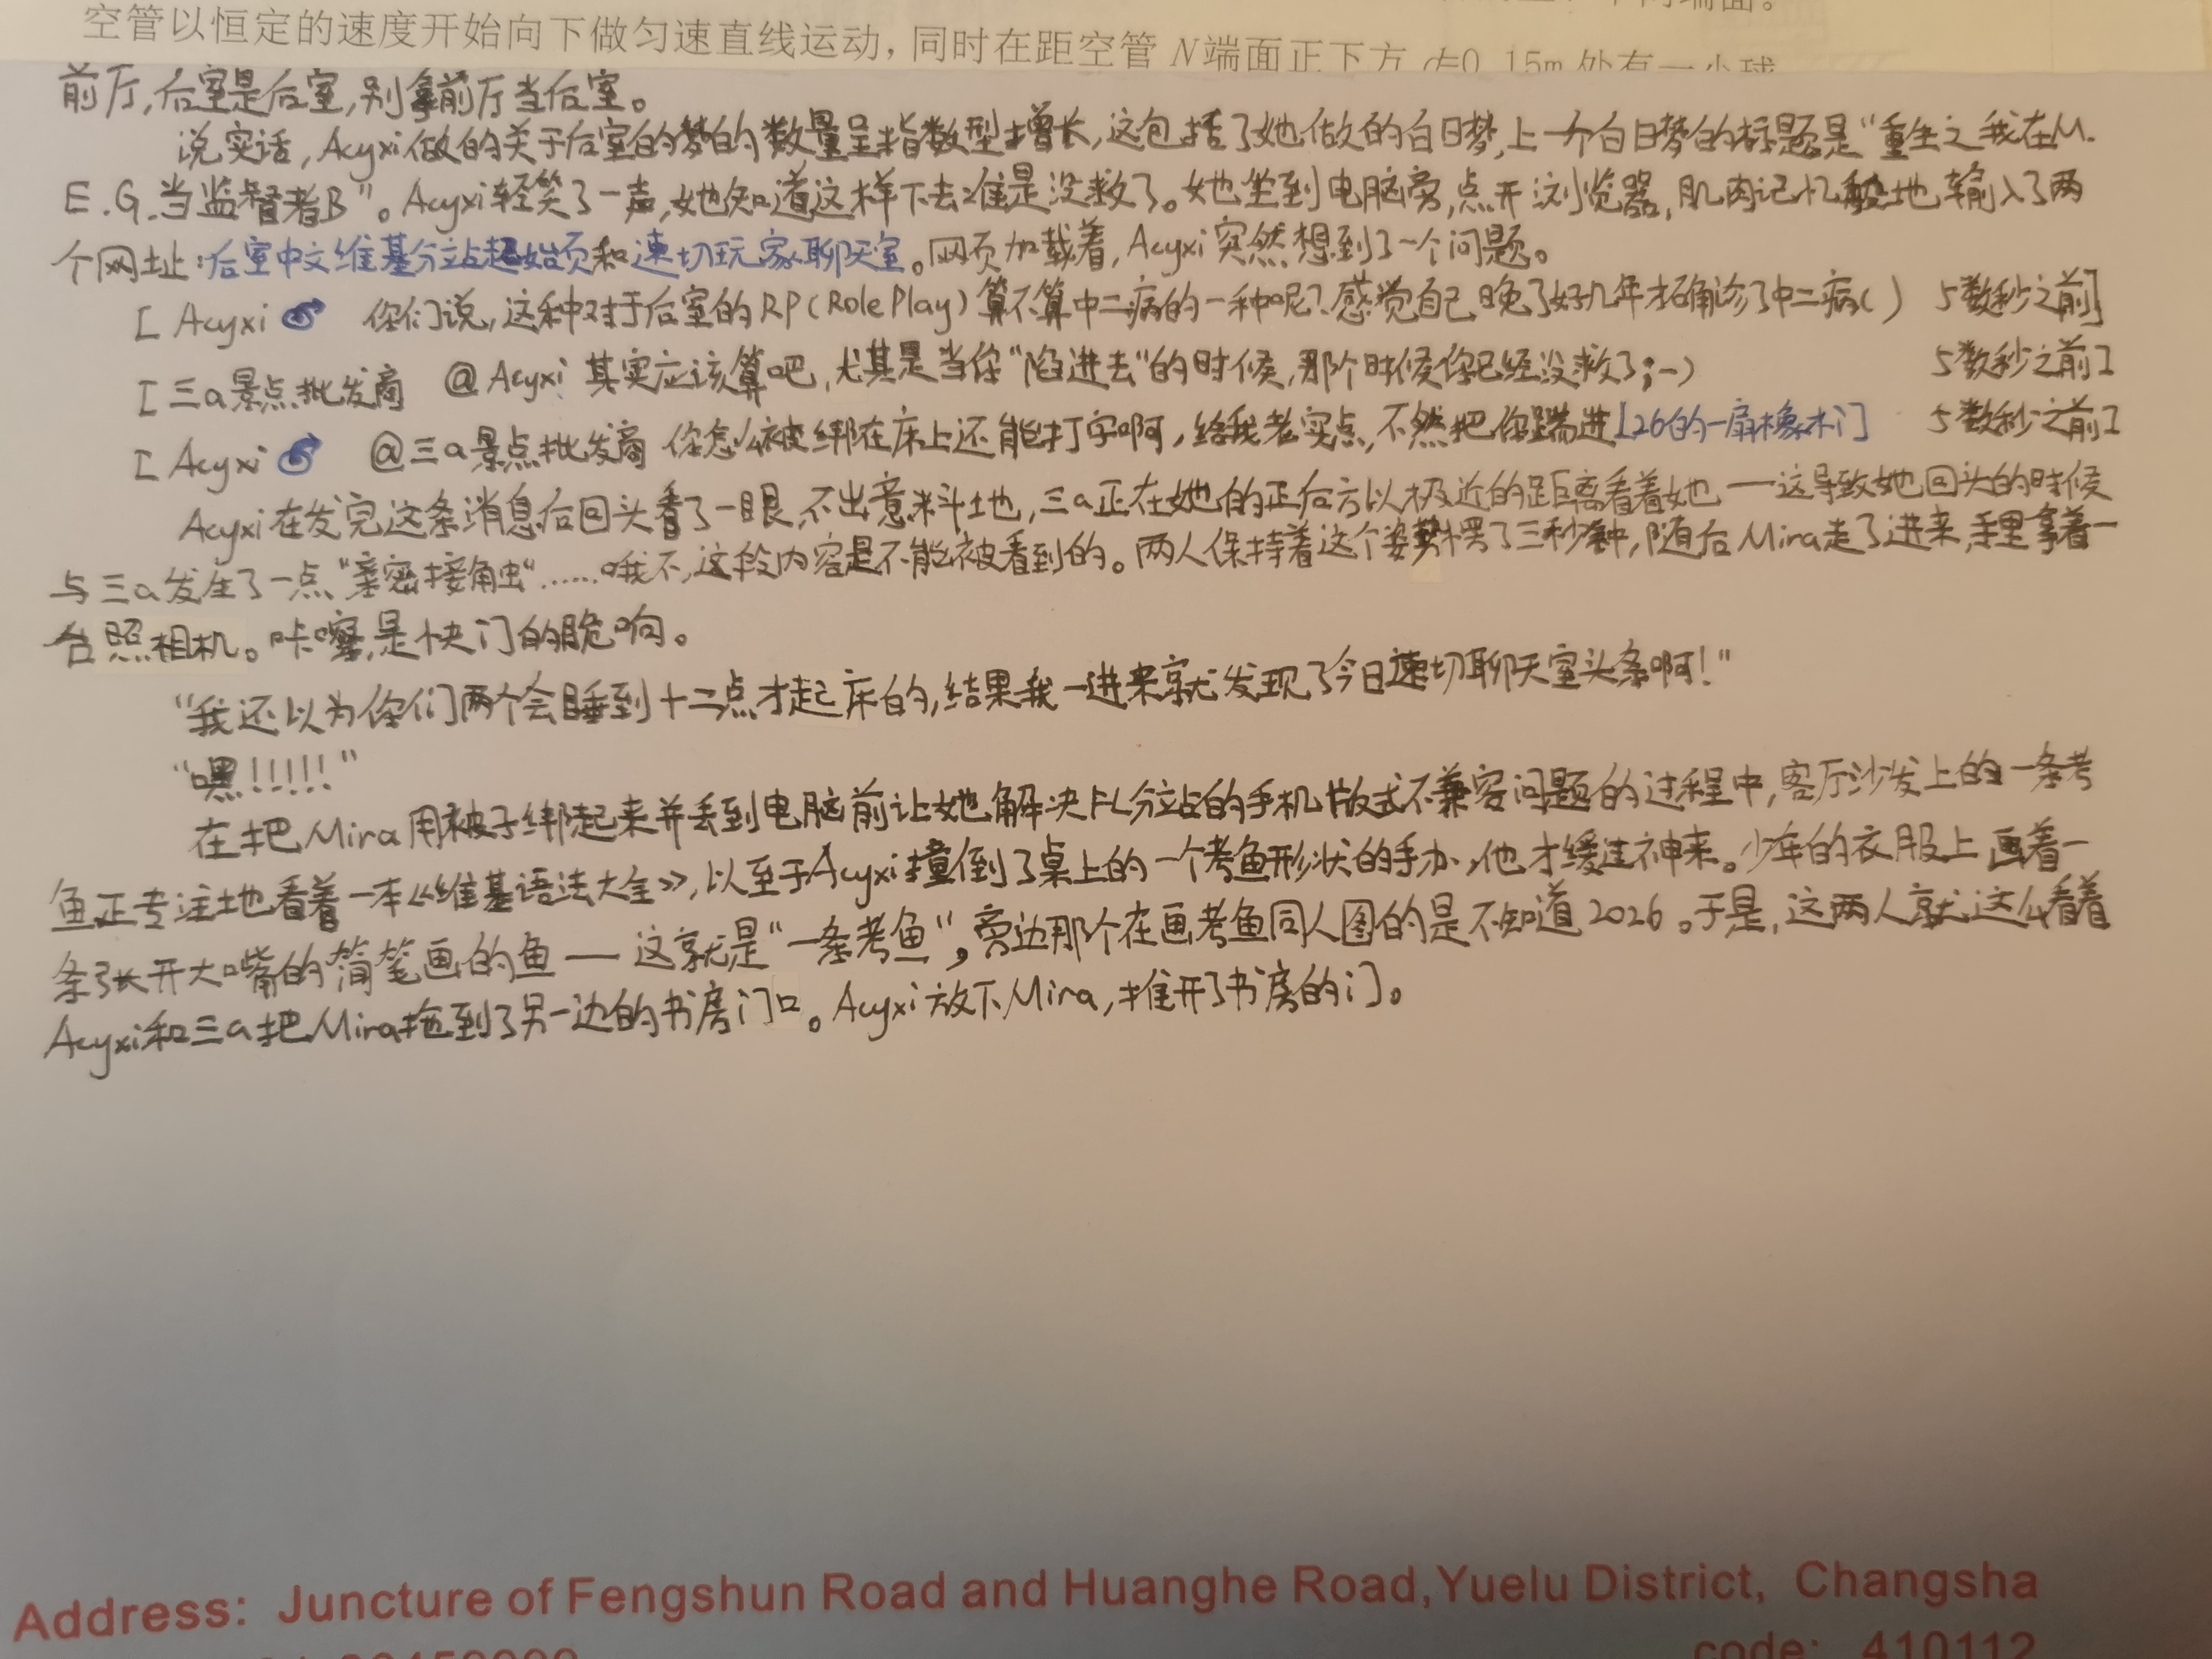 空管以恒定的速度开始向下做匀速直线运动，同时在距空管 N端面正下方
前厅,后室是后室,别拿前厅当后室。
说实话,Acyxi做的关于后室的梦的数量呈指数型增长,这包括了她做的白日梦,上一个白日梦的标题是“重生之我在M.
E.G.当监督者B”。Acyxi轻笑了一声,她知道这样下去准是没救了。她坐到电脑旁,点开浏览器,肌肉记忆般地输入了两
个网址:后室中文维基分站起始页和速切玩家聊天室。网页加载着,Acyxi突然想到了一个问题。
[ Acyxi 你们说,这种对于后室的RP(Role Play)算不算中二病的一种呢?感觉自己晚了好几年才确诊了中二病() 5数秒之前]
[ 三a景点批发商 @Acyxi 其实应该算吧,尤其是当你“陷进去”的时候,那个时候你已经没救了;-) 5数秒之前]
[ Acyxi @三a景点批发商 你怎么被绑在床上还能打字啊,给我老实点,不然把你踹进[26的一扇橡木门] 5数秒之前]
Acyxi在发完这条消息后回头看了一眼,不出意料地,三a正在她的正后方以极近的距离看着她—这导致她回头的时候
与三a发生了一点“亲密接触”......哦不,这段内容是不能被看到的。两人保持着这个姿势愣了三秒钟,随后Mira走了进来,手里拿着一
台照相机。咔嚓,是快门的脆响。
“我还以为你们两个会睡到十二点才起床的,结果我一进来就发现了今日速切聊天室头条啊!”
“嘿!!!!!”
在把Mira用被子绑起来并丢到电脑前让她解决FL分站的手机版式不兼容问题的过程中,客厅沙发上的一条考
鱼正专注地看着一本《维基语法大全》,以至于Acyxi撞倒了桌上的一个考鱼形状的手办,他才缓过神来。少年的衣服上画着一
条张开大嘴的简笔画的鱼—这就是“一条考鱼”,旁边那个在画考鱼同人图的是不知道2026。于是,这两人就这么看着
Acyxi和三a把Mira拖到了另一边的书房门口。Acyxi放下Mira,推开了书房的门。
Address: Juncture of Fengshun Road and Huanghe Road,Yuelu District, Changsha
code: 410112